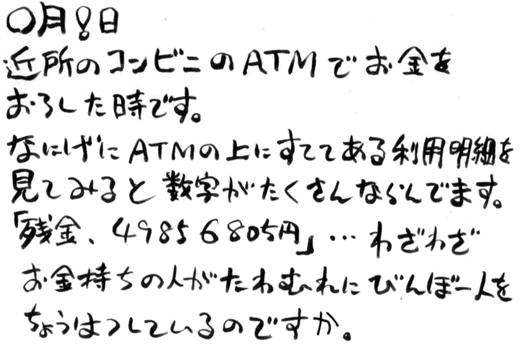 〇月〇日
近所のコンビニのATMでお金を
おろした時です。
なにげにATMの上にすててある利用明細を
見てみると数字がたくさんならんでます。
「残金、49856805円」…わざわざ
お金持ちの人がたわむれにびんぼー人を
ちょうはつしているのですか。